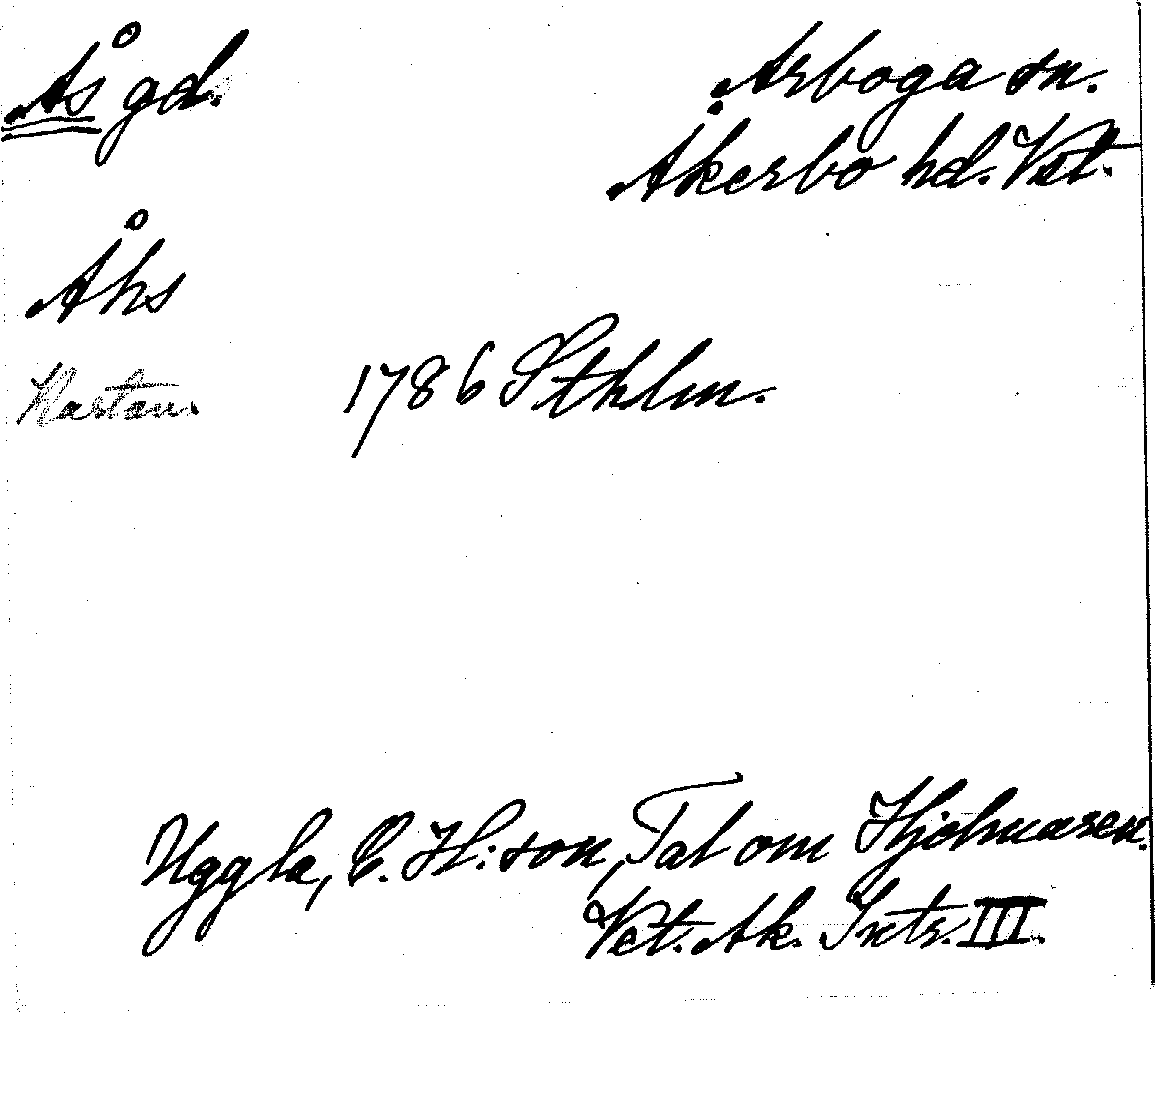 Ås gd.
Arboga sn.
Åkerbo hd. Vstl.
Åhs
Kartan.
1786 Sthlm.
Uggla, C. H:son, Tal om Hjelmaren.
Vet. Ak. Intr. III.